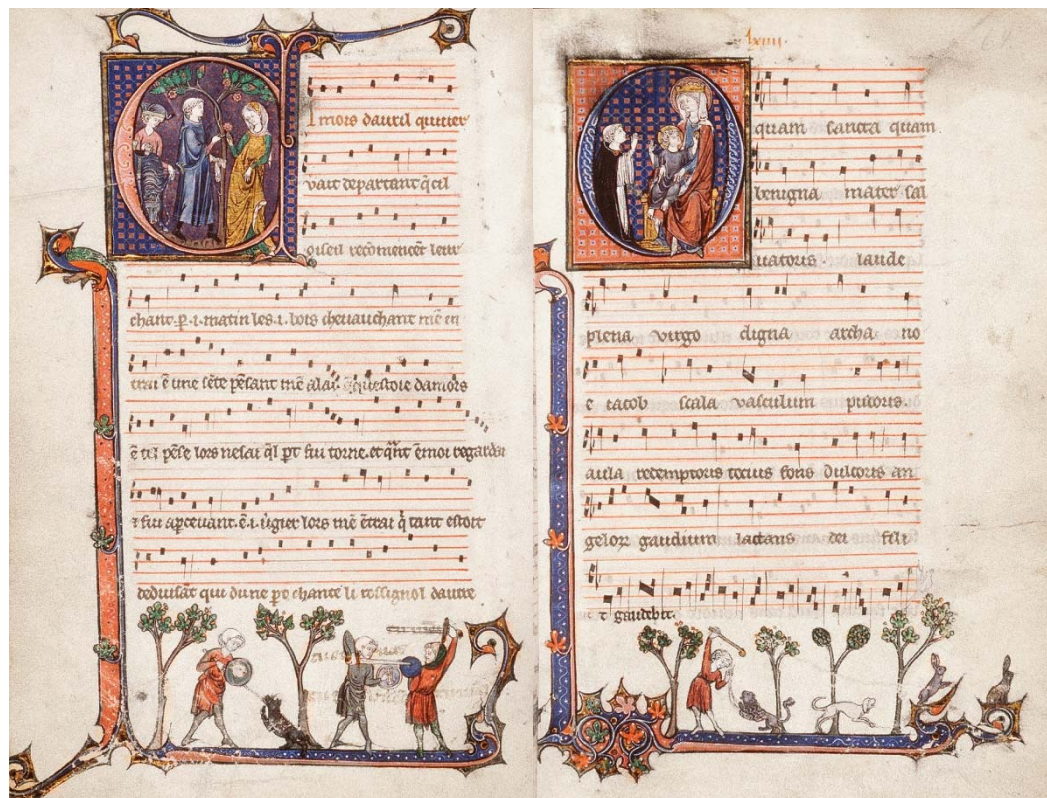 mois dauril quiuier
vait departant q̃ cil
oiseil recōmencēt leur
chant·p·i·matin les·i·bois cheuauchant mē en
trai ē une sēte pēsant mē alai· damors
pēse lors nesai ql pt fui torne. et qnt ēmoi regardai
apceuant·ē·i·ūgier lors mē ētrai q̇ tant estoit
deduisāt qui dune pt chante li rossignol dautre
lxiiii.
quam sancta quam
benigna mater sal
uatoris laude
plena virgo digna archa no
e iacob scala vasculum pudoris.
aula redemptoris tocius fons dulcoris an
geloꝝ gaudium lactans dei fili
t gaudebit.